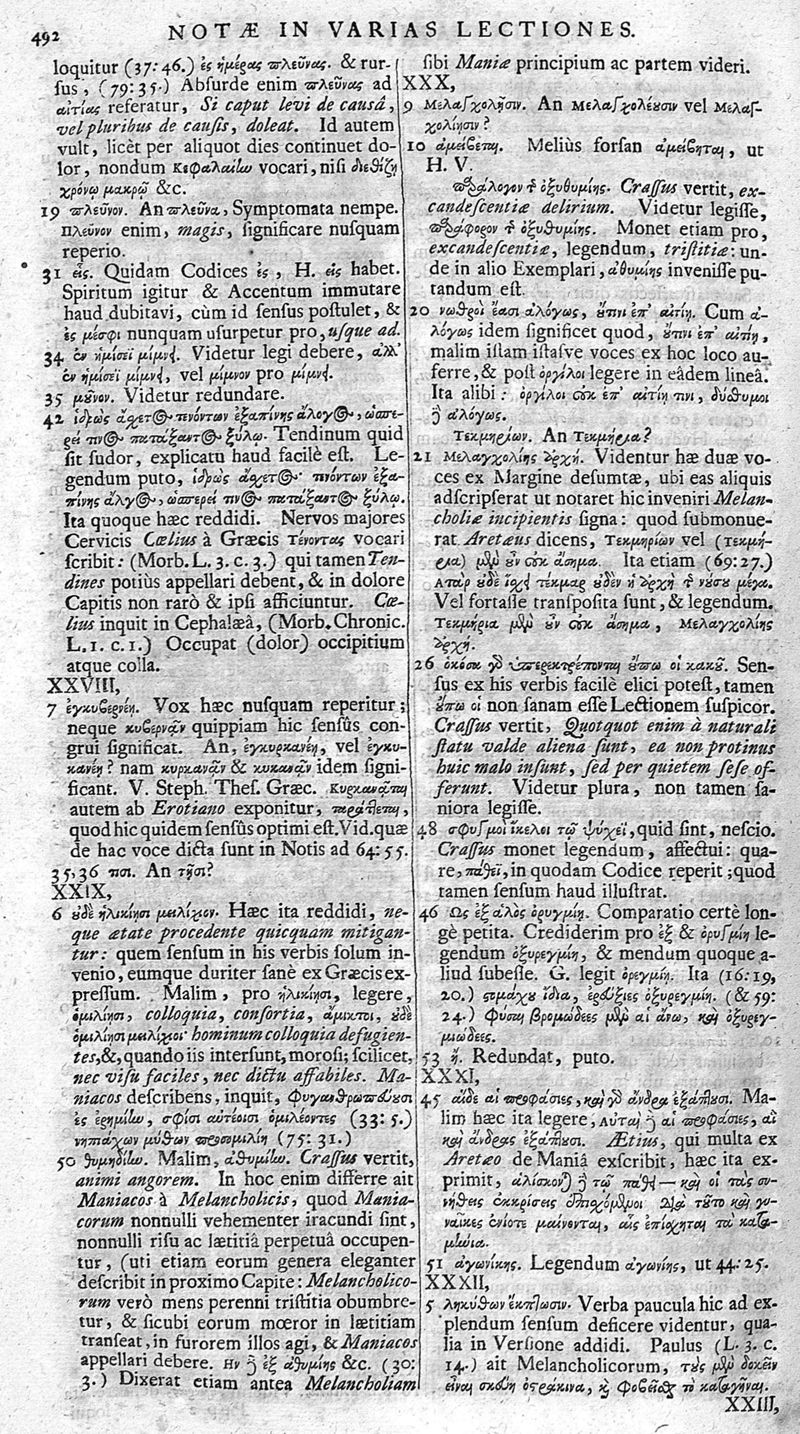 492
NOTÆ IN VARIAS LECTIONES.
loquitur (37:46.) ἐς ἡμέρας πλεῦνας. & rur-
sus, (79:35.) Absurde enim πλεῦνας ad
αἰτίας referatur, Si caput levi de causâ,
vel pluribus de causis, doleat. Id autem
vult, licèt per aliquot dies continuet do-
lor, nondum Κεφαλαίην vocari, nisi διεθίζῃ
χρόνῳ μακρῷ &c.
19 πλεῦνον. An πλεῦνα, Symptomata nempe.
Πλεῦνον enim, magis, significare nusquam
reperio.
31 εἷς. Quidam Codices ἐς, H. εἰς habet.
Spiritum igitur & Accentum immutare
haud dubitavi, cùm id sensus postulet, &
ἐς μέσφι nunquam usurpetur pro, usque ad.
34 ἐν ἡμίσεϊ μίμνῃ. Videtur legi debere, ἀλλ'
ἐν ἡμίσεϊ μίμνῃ, vel μίμνον pro μίμνῃ.
35 μοῦνον. Videtur redundare.
42 ἱδρὼς ἄρχετος τενόντων ἐξαπίνης ἄλογος, ὡσπε-
ρεί τινος πατάξαντος ξύλῳ. Tendinum quid
sit sudor, explicatu haud facilè est. Le-
gendum puto, ἱδρὼς ἄρχετος· τενόντων ἐξα-
πίνης ἄλγος, ὡσπερεί τινος πατάξαντος ξύλῳ.
Ita quoque hæc reddidi. Nervos majores
Cervicis Cœlius à Græcis Τένοντας vocari
scribit: (Morb. L. 3. c. 3.) qui tamen Ten-
dines potiùs appellari debent, & in dolore
Capitis non rarò & ipsi afficiuntur. Cœ-
lius inquit in Cephalæâ, (Morb. Chronic.
L. 1. c. 1.) Occupat (dolor) occipitium
atque colla.
XXVIII,
7 ἐγκυβερνέῃ. Vox hæc nusquam reperitur;
neque κυβερνᾷν quippiam hic sensûs con-
grui significat. An, ἐγκυρκανέῃ, vel ἐγκυ-
κανέῃ? nam κυρκανᾷν & κυκανᾷν idem signi-
ficant. V. Steph. Thes. Græc. Κυρκανᾶται
autem ab Erotiano exponitur, ταράττεται,
quod hic quidem sensûs optimi est. Vid. quæ
de hac voce dicta sunt in Notis ad 64:55.
35,36 τισι. An τῇσι?
XXIX,
6 οὐδὲ ἡλικίῃσι μειλίχιον. Hæc ita reddidi, ne-
que ætate procedente quicquam mitigan-
tur: quem sensum in his verbis solum in-
venio, eumque duriter sanè ex Græcis ex-
pressum. Malim, pro ἡλικίῃσι, legere,
ὁμιλίῃσι, colloquia, consortia, ἄμικτοι, οὐδὲ
ὁμιλίῃσι μειλίχιοι· hominum colloquia defugien-
tes, &, quando iis intersunt, morosi; scilicet,
nec visu faciles, nec dictu affabiles. Ma-
niacos describens, inquit, φυγανθρωπεύουσι
ἐς ἐρημίην, σφίσι αὐτέοισι ὁμιλέοντες (33:5.)
νηπιάχων μύθων προσομιλίη (75:31.)
50 θυμηδίην. Malim, ἀθυμίην. Crassus vertit,
animi angorem. In hoc enim differre ait
Maniacos à Melancholicis, quod Mania-
corum nonnulli vehementer iracundi sint,
nonnulli risu ac lætitiâ perpetuâ occupen-
tur, (uti etiam eorum genera eleganter
describit in proximo Capite: Melancholico-
rum verò mens perenni tristitia obumbre-
tur, & sicubi eorum mœror in lætitiam
transeat, in furorem illos agi, & Maniacos
appellari debere. Ην δὲ ἐξ ἀθυμίης &c. (30:
3.) Dixerat etiam antea Melancholiam
sibi Maniæ principium ac partem videri.
XXX,
9 Μελαγχολῆσιν. An Μελαγχολέουσιν vel Μελαγ-
χολίησιν?
10 ἀμείβεται. Meliùs forsan ἀμείβηται, ut
H. V.
παράλογον τ ὀξυθυμίης. Crassus vertit, ex-
candescentiæ delirium. Videtur legisse,
παράφορον τ ὀξυθυμίης. Monet etiam pro,
excandescentiæ, legendum, tristitiæ: un-
de in alio Exemplari, ἀθυμίης invenisse pu-
tandum est.
20 νωθροὶ ἔασι ἀλόγως, οὔτινι ἐπ' αἰτίῃ. Cum ἀ-
λόγως idem significet quod, οὔτινι ἐπ' αἰτίῃ,
malim istam istasve voces ex hoc loco au-
ferre, & post ὀργίλοι legere in eâdem lineâ.
Ita alibi: ὀργίλοι οὐκ ἐπ' αἰτίῃ τινι, δύσθυμοι
δὲ ἀλόγως.
Τεκμηρίων. An Τεκμήρια?
21 Μελαγχολίης ἀρχή. Videntur hæ duæ vo-
ces ex Margine desumtæ, ubi eas aliquis
adscripserat ut notaret hic inveniri Melan-
choliæ incipientis signa: quod submonue-
rat Aretæus dicens, Τεκμηρίων vel (Τεκμή-
ρια) μὲν οὖν οὐκ ἄσημα. Ita etiam (69:27.)
Ατὰρ οὐδὲ ἴσχει τέκμαρ οὐδὲν ἡ ἀρχὴ τ νούσου μέγα.
Vel fortasse transposita sunt, & legendum.
Τεκμήρια μὲν οὖν οὐκ ἄσημα, Μελαγχολίης
ἀρχή.
26 ὁκόσοι γὰρ ὑπερεκτρέπονται οὔπω οἱ κακοῦ. Sen-
sus ex his verbis facilè elici potest, tamen
οὔπω οἱ non sanam esse Lectionem suspicor.
Crassus vertit, Quotquot enim à naturali
statu valde aliena sunt, ea non protinus
huic malo insunt, sed per quietem sese of-
ferunt. Videtur plura, non tamen sa-
niora legisse.
48 σφυγμοὶ ἴκελοι τῷ ψύχεϊ, quid sint, nescio.
Crassus monet legendum, affectui: qua-
re, πάθεϊ, in quodam Codice reperit; quod
tamen sensum haud illustrat.
46 Ως ἐξ ἁλὸς ὀρυγμίη. Comparatio certè lon-
gè petita. Crediderim pro ἐξ & ὀρυγμίη le-
gendum ὀξυρεγμίη, & mendum quoque a-
liud subesse. G. legit ὀρεγμίη. Ita (16:19,
20.) στομάχου ἴδια, ἐρεύξιες ὀξυρεγμίη. (& 59:
24.) Φῦσαι βρομώδεες μὲν αἱ ἄνω, καὶ ὀξυρεγ-
μιώδεες.
53 ἢ. Redundat, puto.
XXXI,
45 αἵδε αἱ προφάσιες, καὶ γὰρ ἄνδρα ἐξάπτουσι. Ma-
lim hæc ita legere, Αὗται δὲ αἱ προφάσιες, αἳ
καὶ ἄνδρας ἐξάπτουσι. Ætius, qui multa ex
Aretæo de Maniâ exscribit, hæc ita ex-
primit, ἁλίσκονται δὲ τῷ πάθει — καὶ οἱ τὰς συ-
νήθεις ἐκκρίσεις ἐπεχόμενοι· Διὰ τοῦτο καὶ γυ-
ναῖκες ἐνίοτε μαίνονται, αἷς ἐπίσχηται τὰ κατα-
μήνια.
51 ἀγωνίκης. Legendum ἀγωνίης, ut 44:25.
XXXII,
5 ληκύθων ἔκπτωσιν. Verba paucula hic ad ex-
plendum sensum deficere videntur, qua-
lia in Versione addidi. Paulus (L. 3. c.
14.) ait Melancholicorum, τοὺς μὲν δοκεῖν
εἶναι σκεύη ὀστράκινα, καὶ φοβεῖσθαι τὸ καταγῆναι.
XXIII,